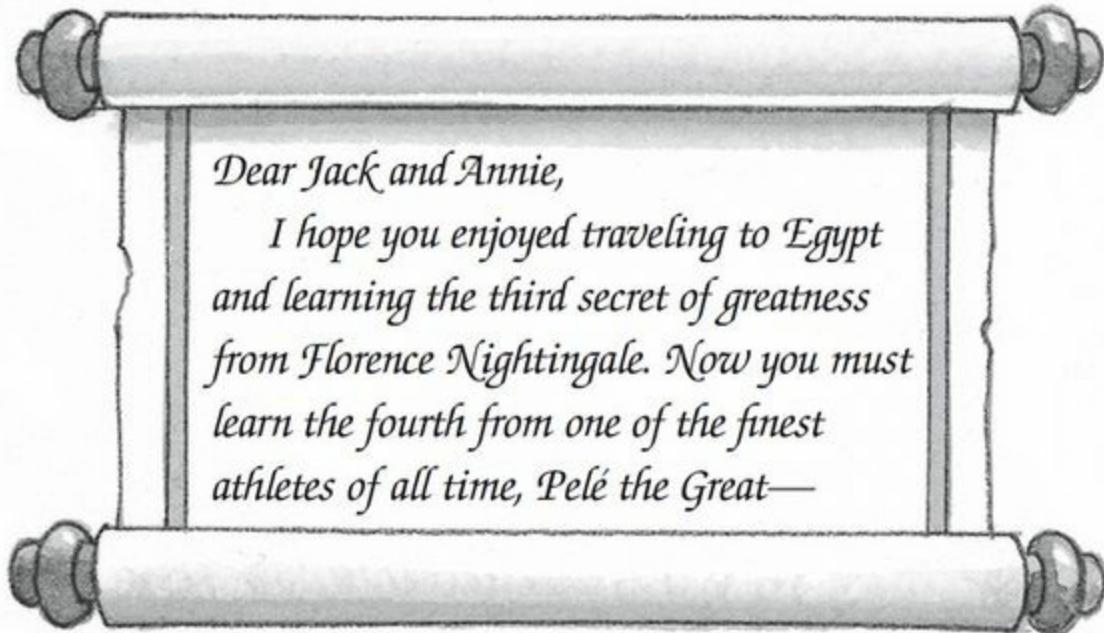 Dear Jack and Annie,
I hope you enjoyed traveling to Egypt
and learning the third secret of greatness
from Florence Nightingale. Now you must
learn the fourth from one of the finest
athletes of all time, Pelé the Great—